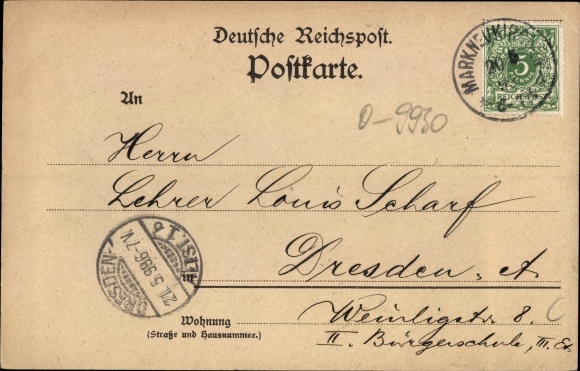 Deutsche Reichspost.
Postkarte.
MARKNEUKIRCHEN
5
REICHSPOST
An
O-9930
Herrn
Lehrer Louis Scharf
DRESDEN-ALTST. 1 b
21.5.99.6-7V.
in
Dresden. A
Wohnung
(Straße und Hausnummer.)
Weinligstr. 8.
II. Bürgerschule, III. Et.